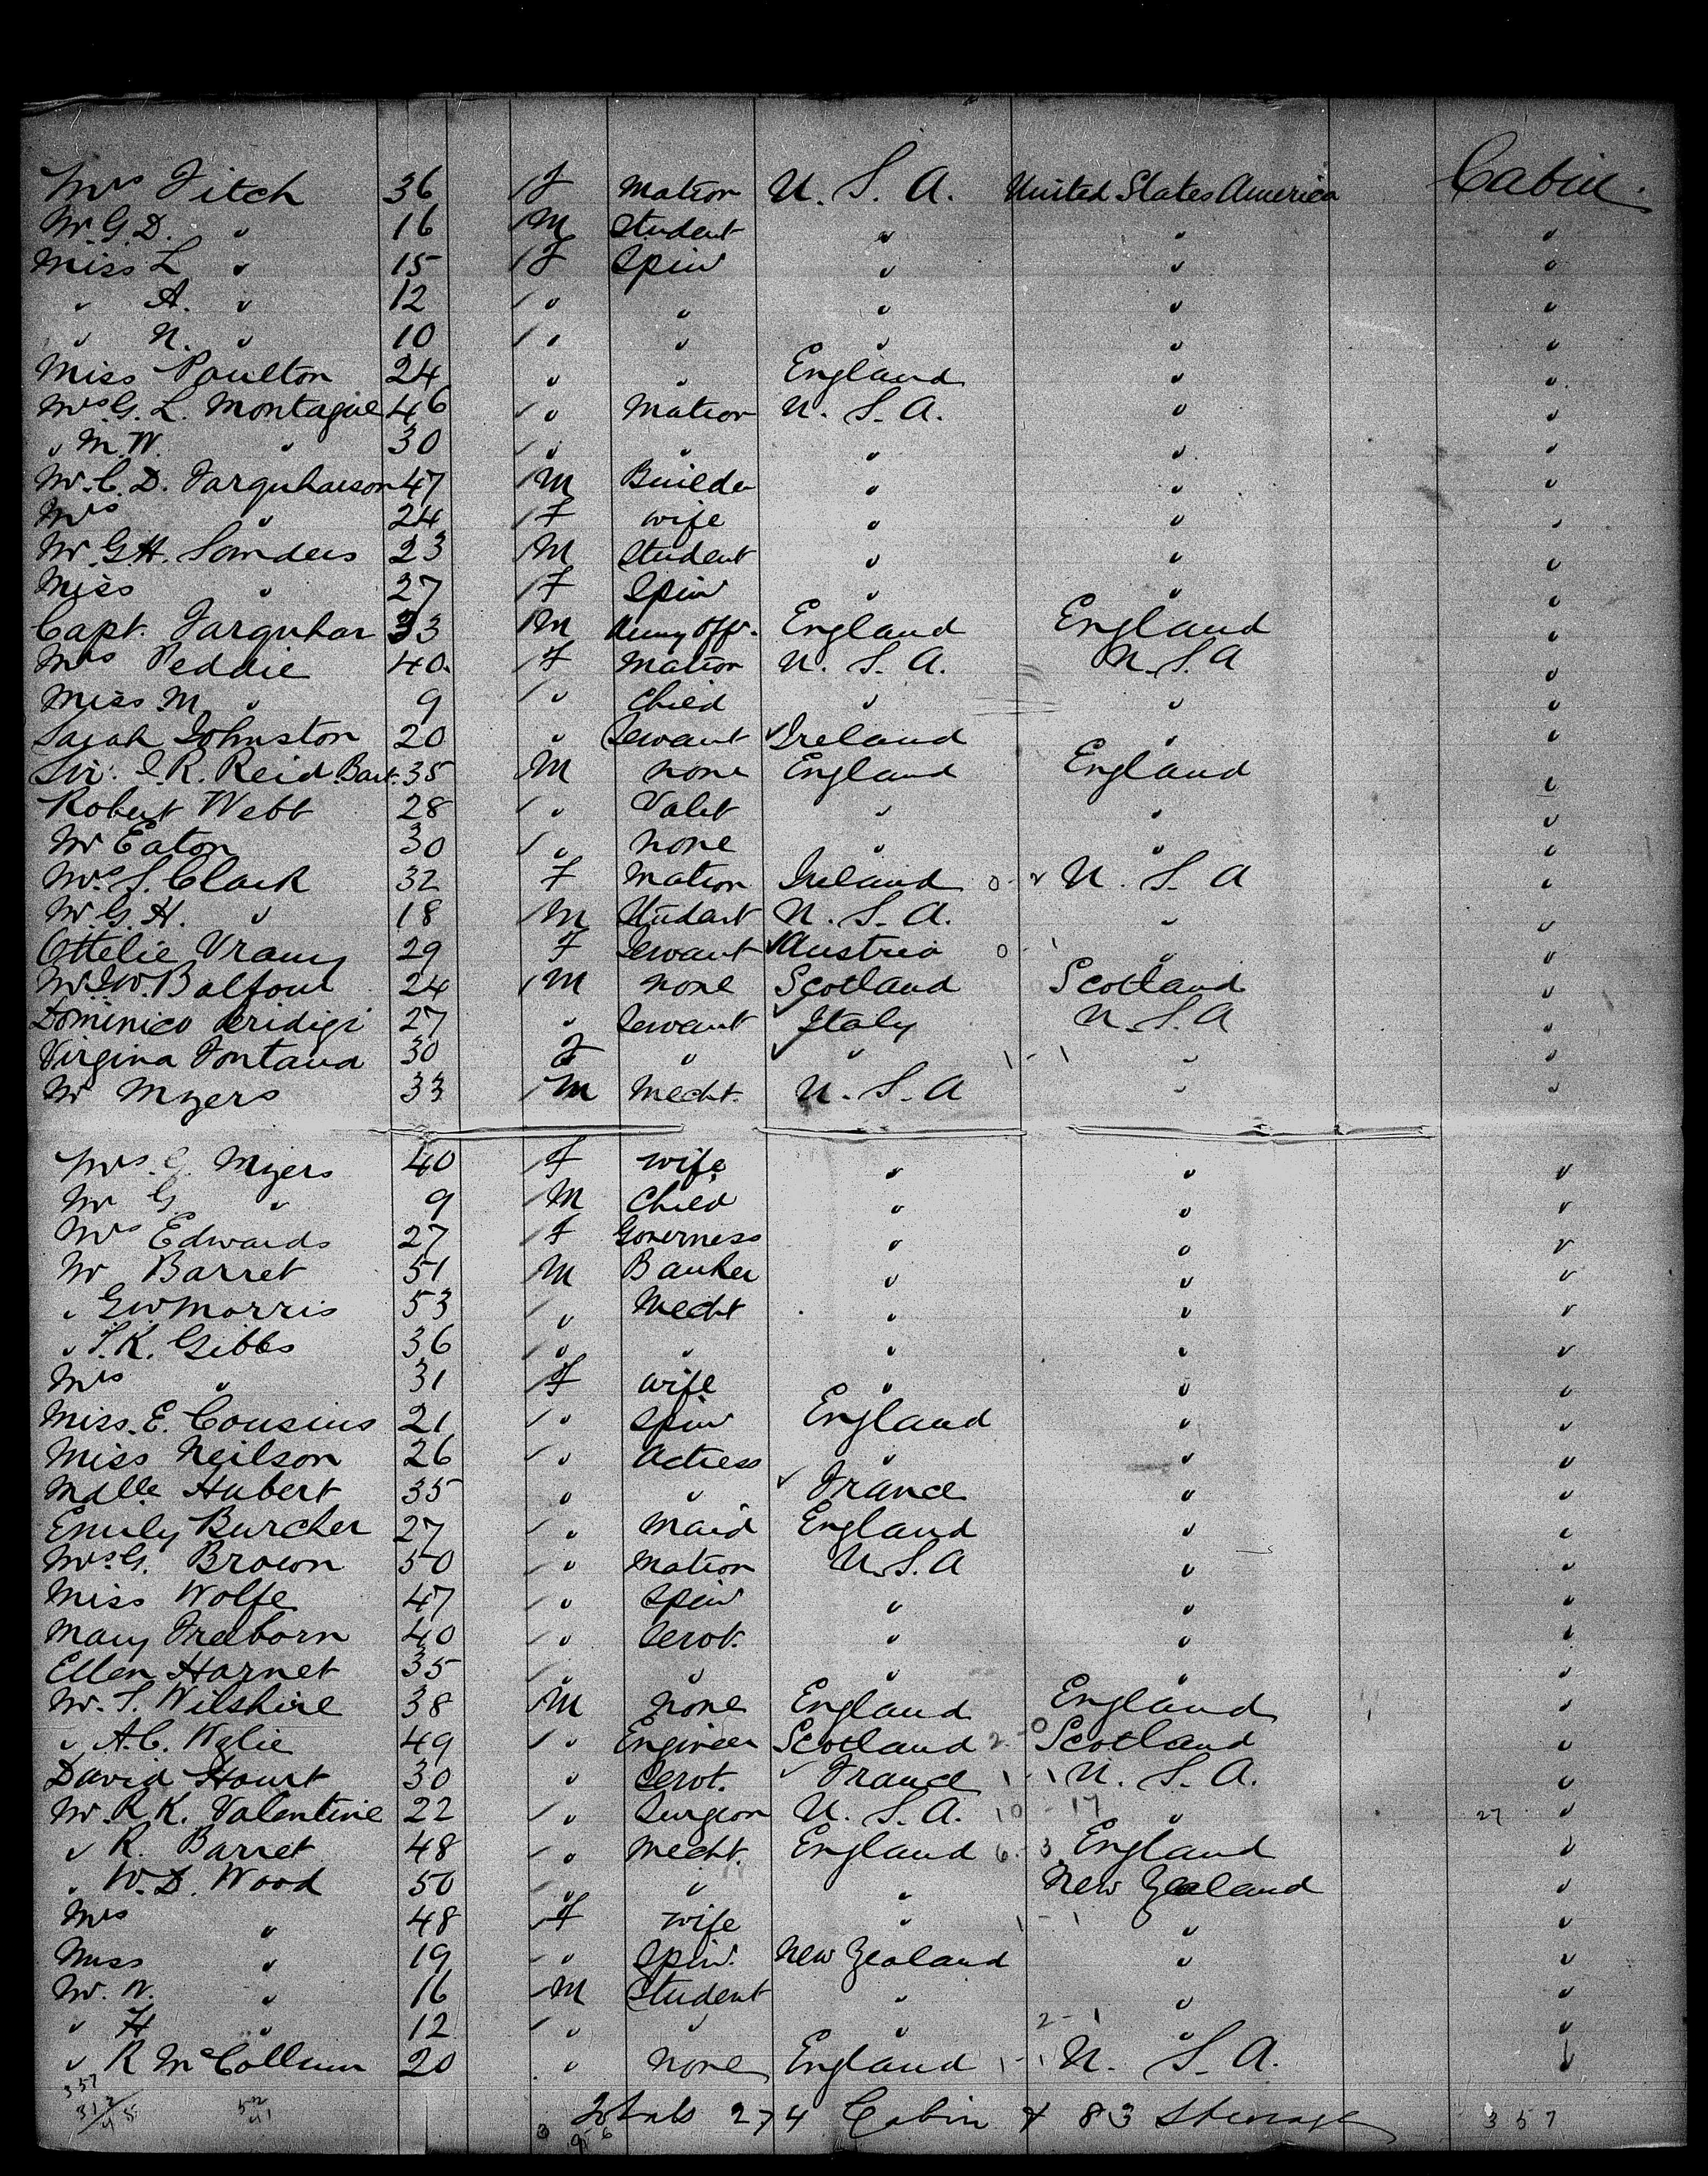 Mrs Fitch 36 / F Matron U. S. A. United States America Cabin.
Mr. G. D. " 16 / M Student " " "
Miss L " 15 / F Spin " " "
" A. " 12 / " " " " "
" N. " 10 / " " " " "
Miss Poulton 24 " " England " "
Mrs G. L. Montague 46 / " Matron U. S. A. " "
" M. W. " 30 / " " " " "
Mr. C. D. Farquharson 47 / M Builder " " "
Mrs " 24 / F wife " " "
Mr. G. H. Sanders 23 / M Student " " "
Miss " 27 / F Spin " " "
Capt. Farquhar 33 / M Army Offr. England England "
Mrs Peddie 40. / F Matron U. S. A. U. S. A "
Miss M. " 9 / " Child " " "
Sarah Johnston 20 " Servant Ireland " "
Sir. R. Reid Bart. 35 M none England England "
Robert Webb 28 / " Valet " " "
Mr Eaton 30 / " none " " "
Mrs S. Clark 32 F Matron Ireland 0- U. S. A "
Mr. G. H. " 18 / M Student U. S. A. " "
Ottelie 29 F Servant Austria 0 - 1 " "
Mr. Balfour 24 / M none Scotland Scotland "
Dominico 27 " Servant Italy U. S. A "
Virgina Fontana 30 F " " 1 - 1 " "
Mr Myers 33 / M Mecht. U. S. A " "
Mrs. G. Myers 40 / F wife " " "
Mr G " 9 M Child " " "
Mrs Edwards 27 / F Governess " " "
Mr Barret 51 M Banker " " "
" G W Morris 53 / " Mecht " " "
" T. K. Gibbs 36 / " " " " "
Mrs " 31 / F wife " " "
Miss. E. Cousins 21 / " Spin England " "
Miss Neilson 26 / " Actress " " "
Mdlle Hubert 35 " " France " "
Emily Burcher 27 / " Maid England " "
Mrs G. Brown 50 / " Matron U. S. A " "
Miss Wolfe 47 / " Spin " " "
Mary Freeborn 40 / " Servt. " " "
Ellen Harnet 35 / " " " " "
Mr. S. Wilshire 38 / M none England England "
" A. C. Wylie 49 / " Engineer Scotland 2-0 Scotland "
David 30 " Servt. France 1 - 1 U. S. A. "
Mr. R. K. Valentine 22 / " Surgeon U. S. A. 10 - 17 " 27 "
" R. Barret 48 / " Mecht. England 6 - 3 England "
" W. D. Wood 50 / " " " New Zealand "
Mrs " 48 / F wife " 1 - 1 " "
Miss " 19 / " Spin. New Zealand " "
Mr. W. " 16 / M Student " " "
" H " 12 / " " " 2 - 1 " "
" R McCollum 20 " none England 1 - 1 U. S. A. "
357
Totals 274 Cabin & 83 Steerage 357